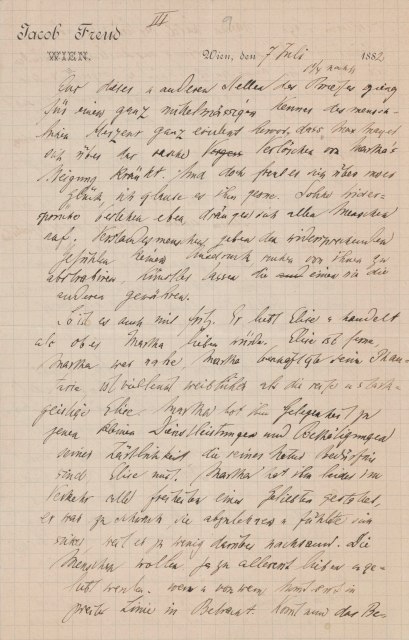 III
9
Jacob Freud
WIEN.
Wien, den 7 Juli 1882
Aus dieser u anderen Stellen des Briefes ging
für einen ganz mittelmässigen Kenner des mensch-
lichen Herzens ganz evident hervor, dass Max Mayer
sich über das rasche Verlöschen von Martha's
Neigung kränkt. Und doch freut es ihn über unser
Glück, ich glaube es ihm gerne. Solche Wider-
sprüche bestehen eben, drängen sich allen Menschen
auf. Verstandesmenschen geben den widersprechenden
Gefühlen keinen Ausdruck, suchen von ihnen zu
abstrahiren, Künstler lassen die einen wie die
anderen gewähren.
So ist es auch mit Fritz. Er liebt Elise u handelt
als ob er Martha lieben würde. Elise ist ferne,
Martha war nahe, Martha beschäftigte seine Phan-
tasie ist vielleicht weiblicher als die reife u stark-
geistige Elise. Martha bot ihm Gelegenheit zu
jenen kleinen Dienstleistungen und Bethätigungen
seiner Zärtlichkeit die seiner Natur Bedürfnis
sind. Elise nicht. Martha bot ihm leider im
Verkehr alle Freiheiten eines Geliebten gestattet,
es war zu schwach die abzulehnen u fühlte sich
sicher weil es zu wenig darüber nachsann. Die
Menschen wollen ja zu allererst lieben u ge-
liebt werden. wen u von wem, kommt erst in
zweiter Linie in Betracht. Kommt nun das Be-